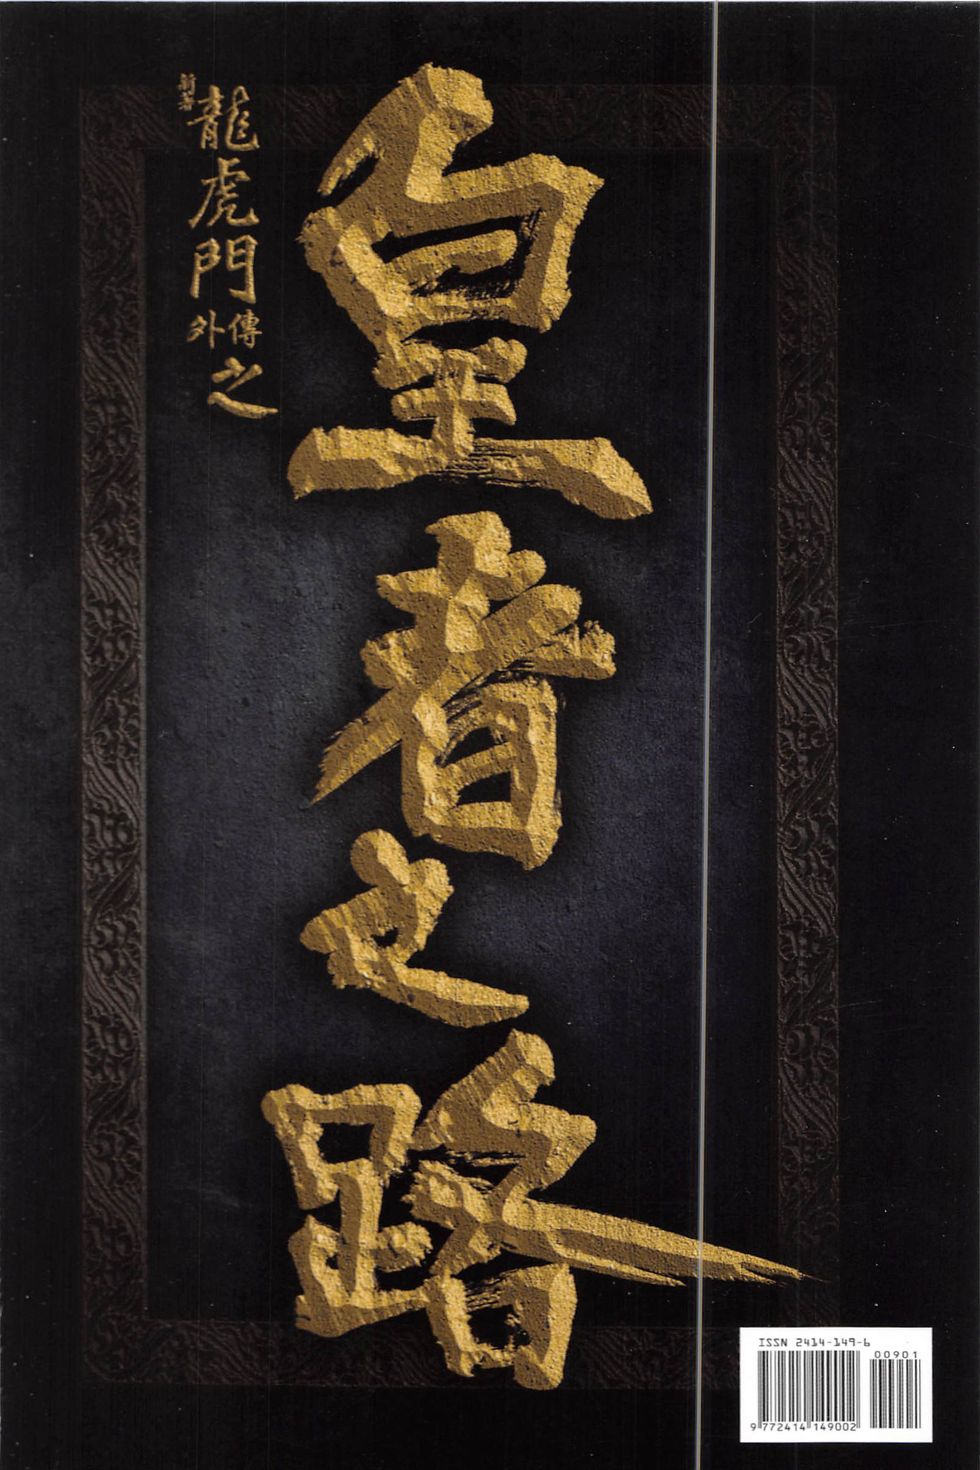 新著
龍虎門
外傳
之
皇者之路
ISSN 2414-149-6
00901
9 772414 149002